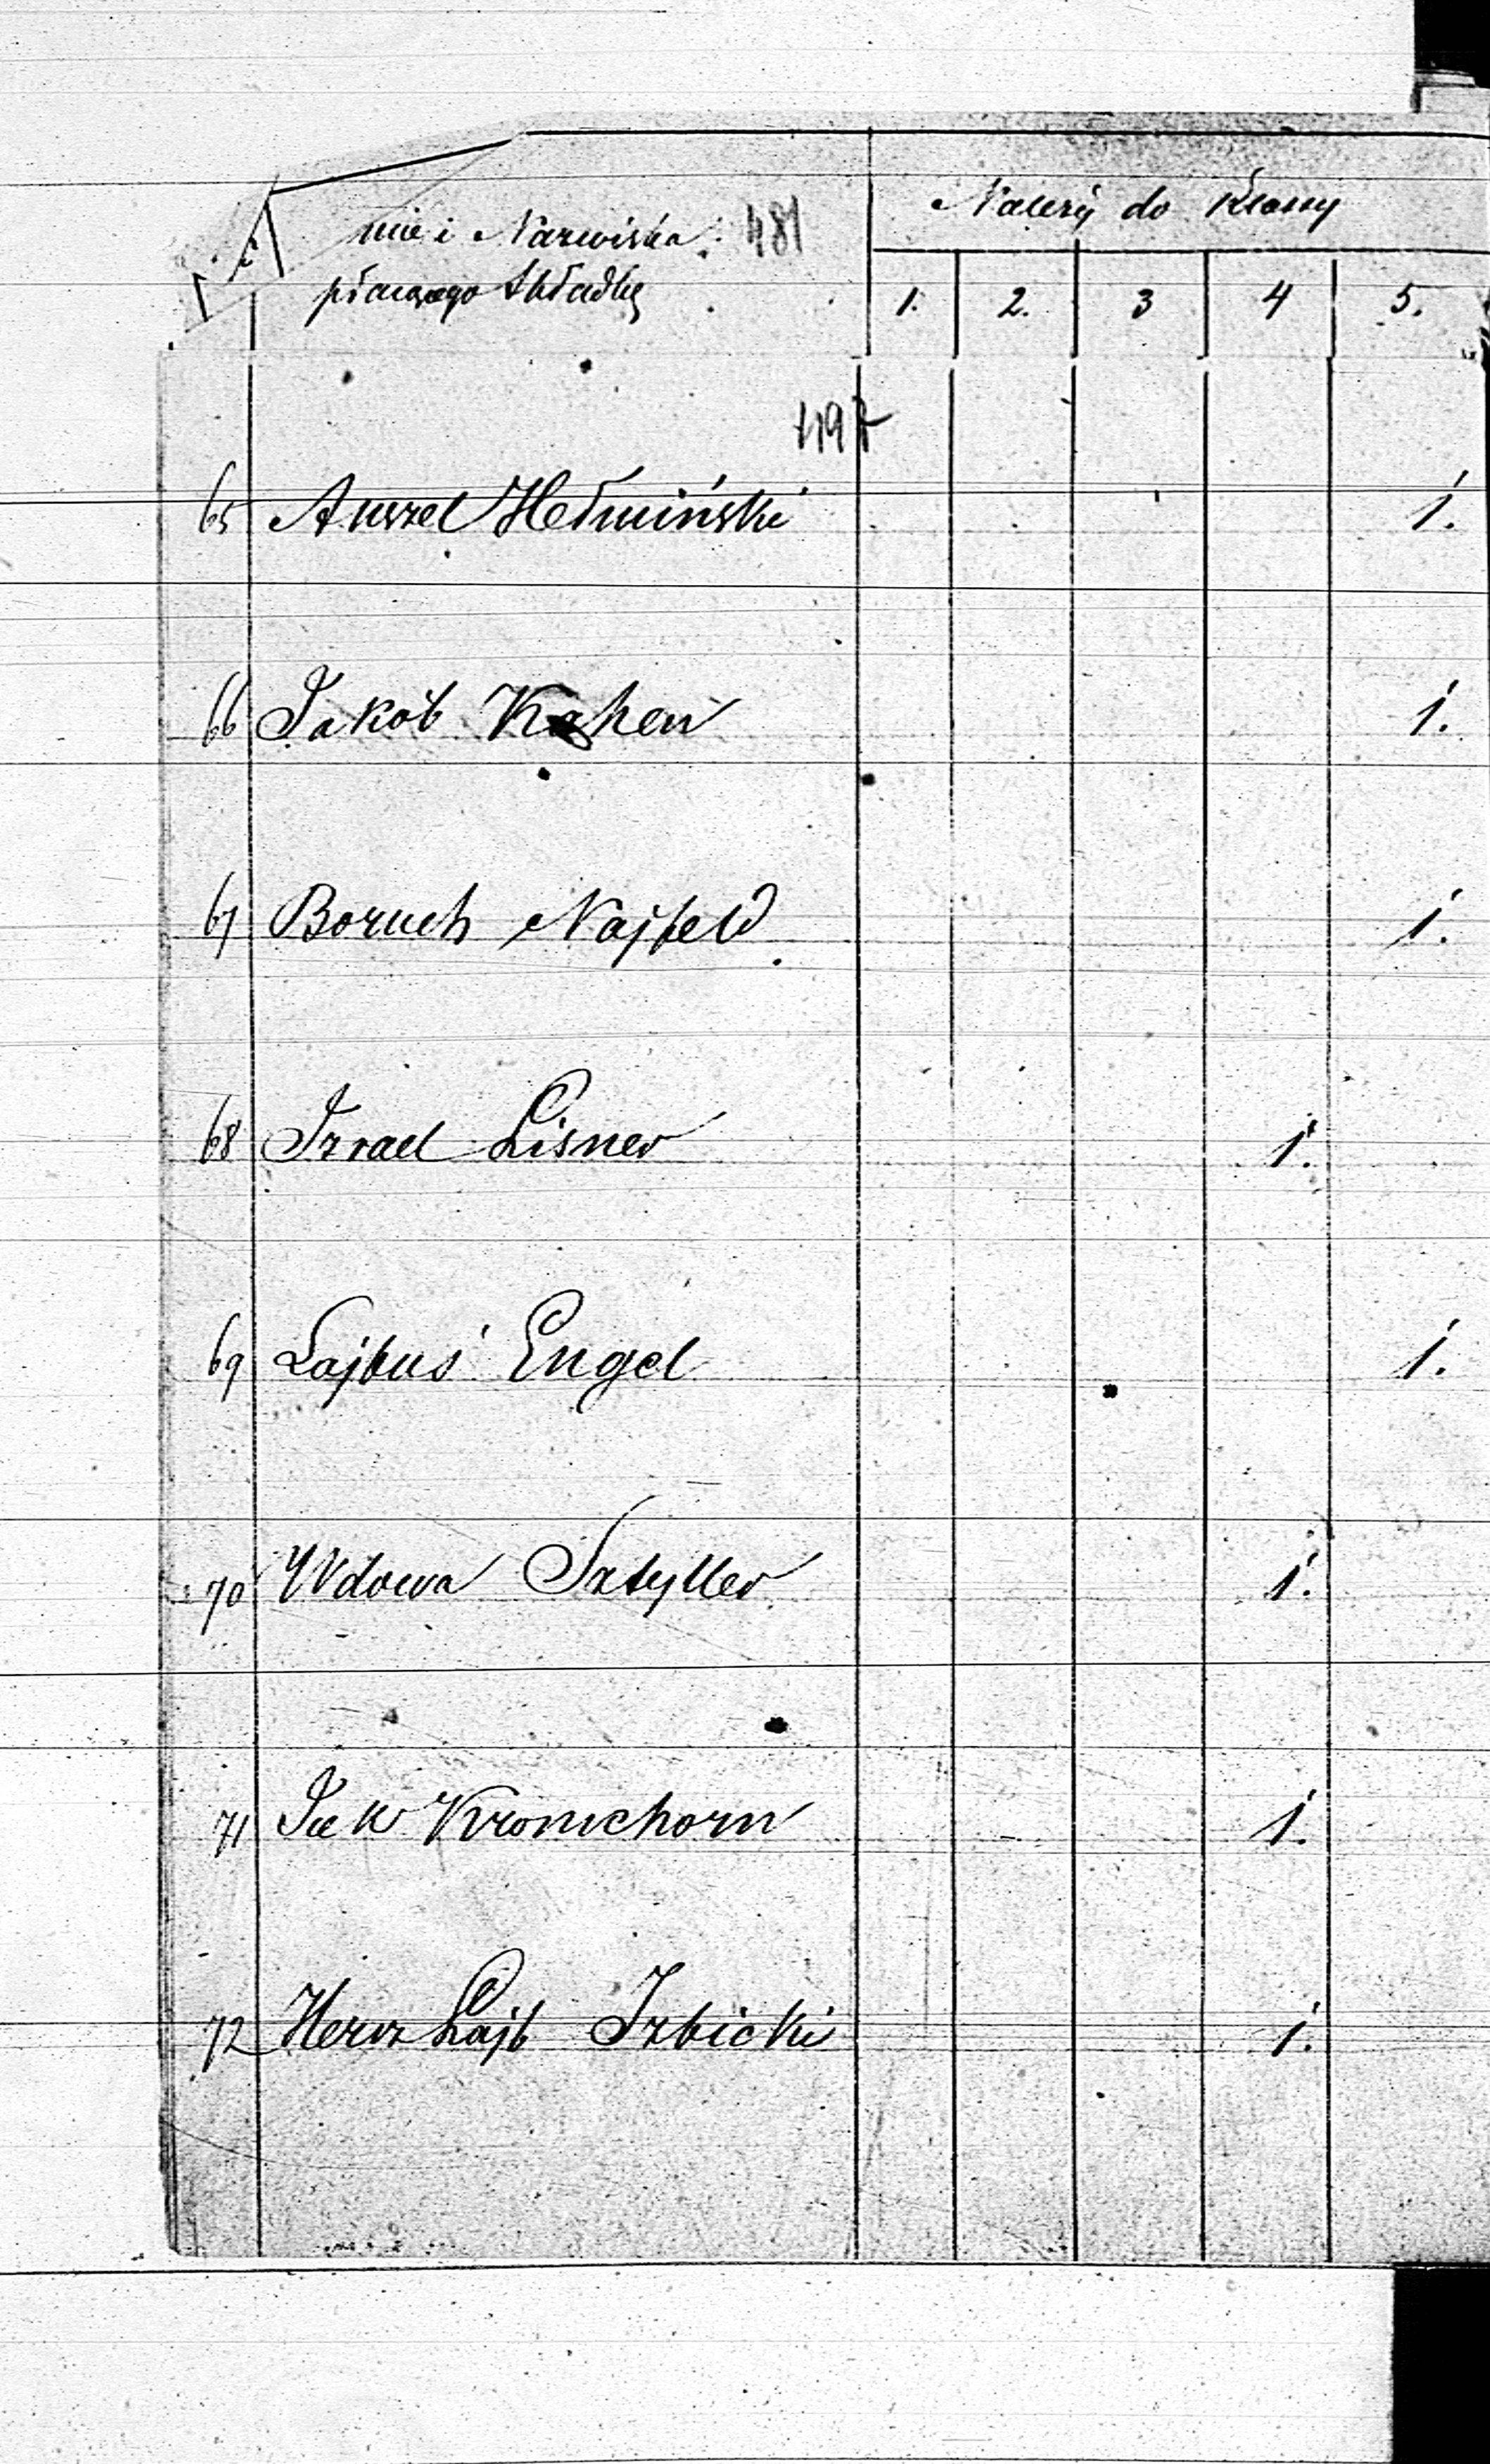 mie i Nazwiska 481
płacącego Składkę
Należy do Klassy
1. 2. 3 4 5.
497
65 Anszel Hełmiński 1.
66 Jakób Kohen 1.
67 Boruch Najfeld 1.
68 Izrael Lisner 1.
69 Lajbuś Engel 1.
70 Wdowa Sztyller 1.
71 Icek Kronchorn 1.
72 Hersz Lajb Izbicki 1.